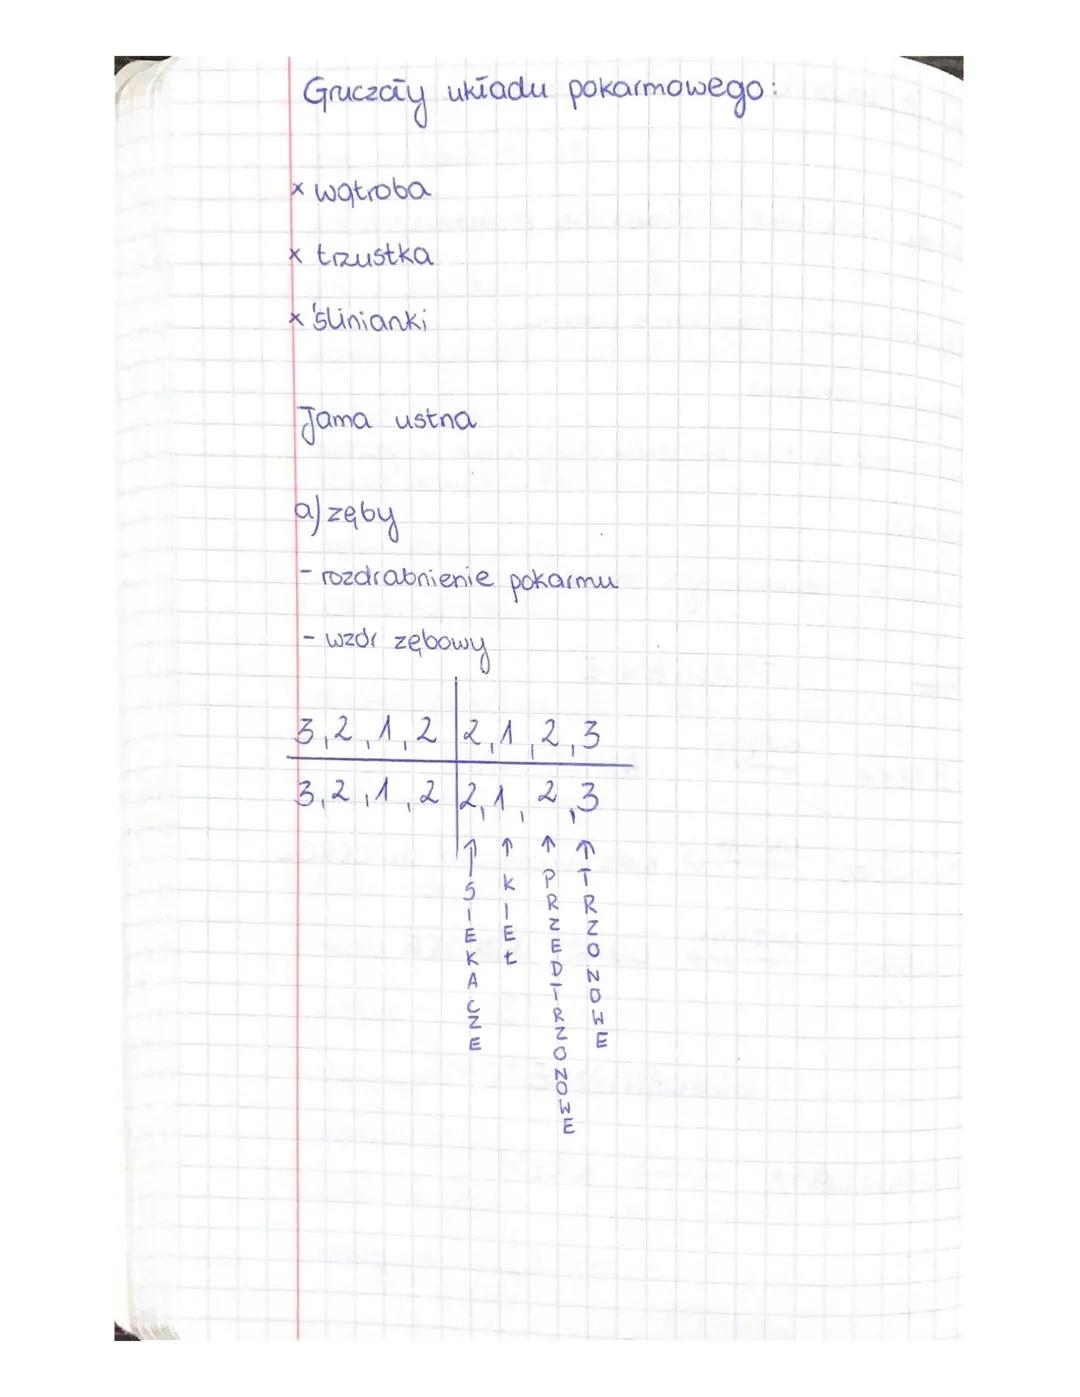 Gruczoły układu pokarmowego:
x wątroba
x trzustka
x ślinianki
Jama ustna
a) zęby
- rozdrabnienie pokarmu
- wzór zębowy
3,2,1,2 | 2,1,2,3
3,2,1,2 | 2,1,2,3
↑ ↑ ↑ ↑
SIEKACZE
KIEŁ
PRZEDTRZONOWE
TRZONOWE